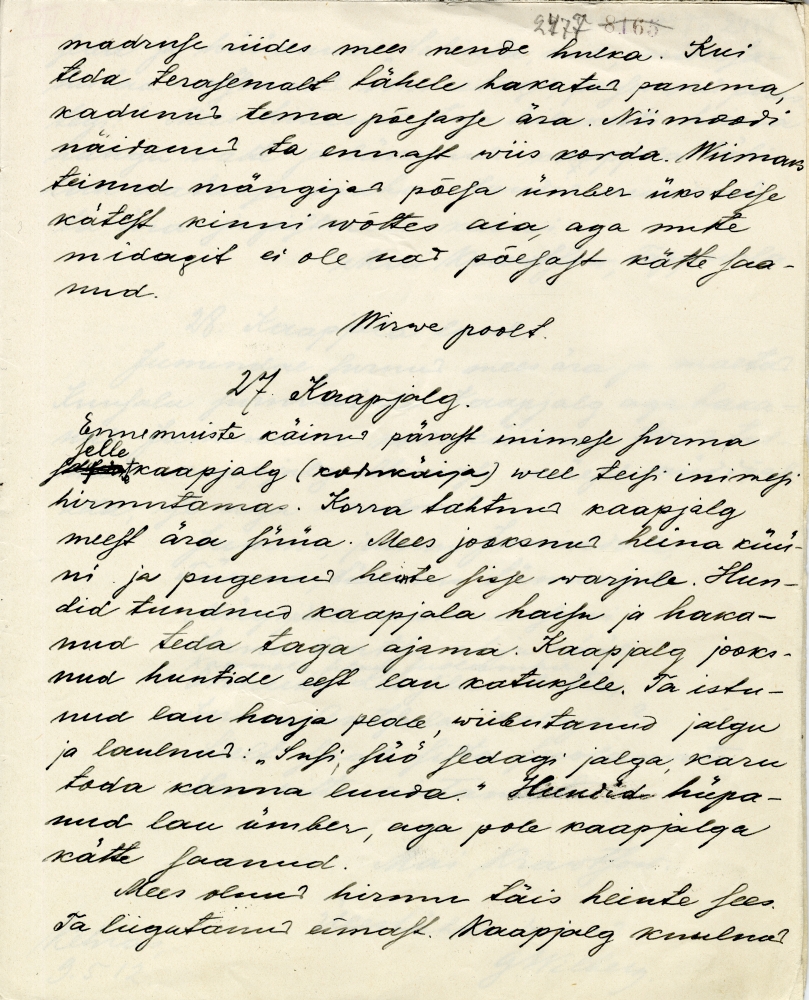 2477 8165
madruse riides mees nende hulka. Kui
teda terasemalt tähele hakatud panema,
kadunud tema põesasse ära. Niimoodi
näidanud ta ennast wiis korda. Wiimaks
teinud mängijad põesa ümber üksteise
kätest kinni wõttes aia, aga mitte
midagit ei ole nad põesast kätte saa-
nud.
Wirwe poolt.
27. Kaapjalg.
Ennemuiste käinud pärast inimese surma
selle
kaapjalg (kodukäija) weel teisi inimesi
hirmutamas. Korra tahtnud kaapjalg
meest ära süüa. Mees jooksnud heina küü-
ni ja pugenud heinte sisse warjule. Hun-
did tundnud kaapjala haisu ja haka-
nud teda taga ajama. Kaapjalg jooks-
nud huntide eest lau katuksele. Ta istu-
nud lau harja peale, wiibutanud jalgu
ja laulnud: „Susi, süö sedagi jalga, karu
toda kanna luuda." Hundid hüpa-
nud lau ümber, aga pole kaapjalga
kätte saanud.
Mees olnud hirmu täis heinte sees.
Ta liigutanud eimast. Kaapjalg kuulnud